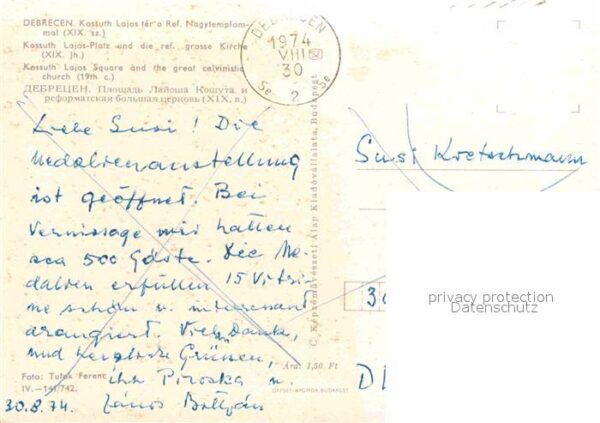 DEBRECEN. Kossuth Lajos tér a Ref. Nagytemplommal (XIX. sz.)
Kossuth Lajos-Platz und die ref. grosse Kirche (XIX. Jh.)
Kossuth Lajos Square and the great calvinistic church (19th c.)
ДЕБРЕЦЕН. Площадь Лайоша Кошута и реформатская большая церковь (XIX. в.)
DEBRECEN
1974
VIII
30
Se 2 Se
Liebe Susi! Die
Medaillenausstellung
ist geöffnet. Bei
Vernissage wir hatten
cca 500 Gäste. Die Me-
dalien erfüllen 15 Vitri-
ne schön u. interessant
arangiert. Viel Dank,
und herzliche Grüssen,
ihre Piroska u.
János
30.8.74.
Foto: Tulok Ferenc
IV.—141/742.
Ára: 1,50 Ft
OFFSET-NYOMDA BUDAPEST
C Képzőművészeti Alap Kiadóvállalata, Budapest
Susi Kretschmann
3
D
privacy protection
Datenschutz